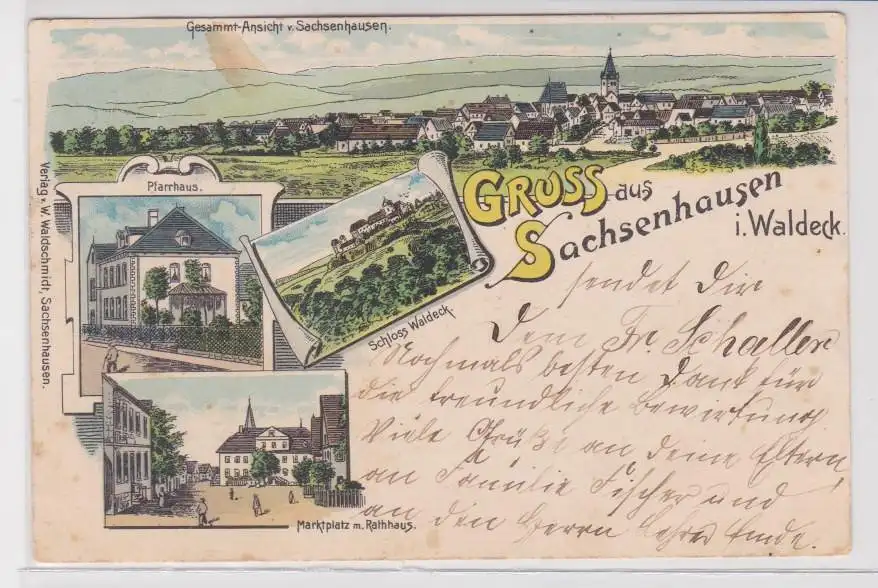 Gesammt-Ansicht v. Sachsenhausen.
Verlag v. W. Waldschmidt, Sachsenhausen.
Pfarrhaus.
Schloss Waldeck.
Marktplatz m. Rathhaus.
GRUSS aus
Sachsenhausen
i. Waldeck.
sendet Dir
Fr. Schaller
Nochmals besten Dank für
die freundliche Bewirtung
Viele Grüße an deine Eltern
an Familie Fischer und
an den Herrn Lehrer Ende.